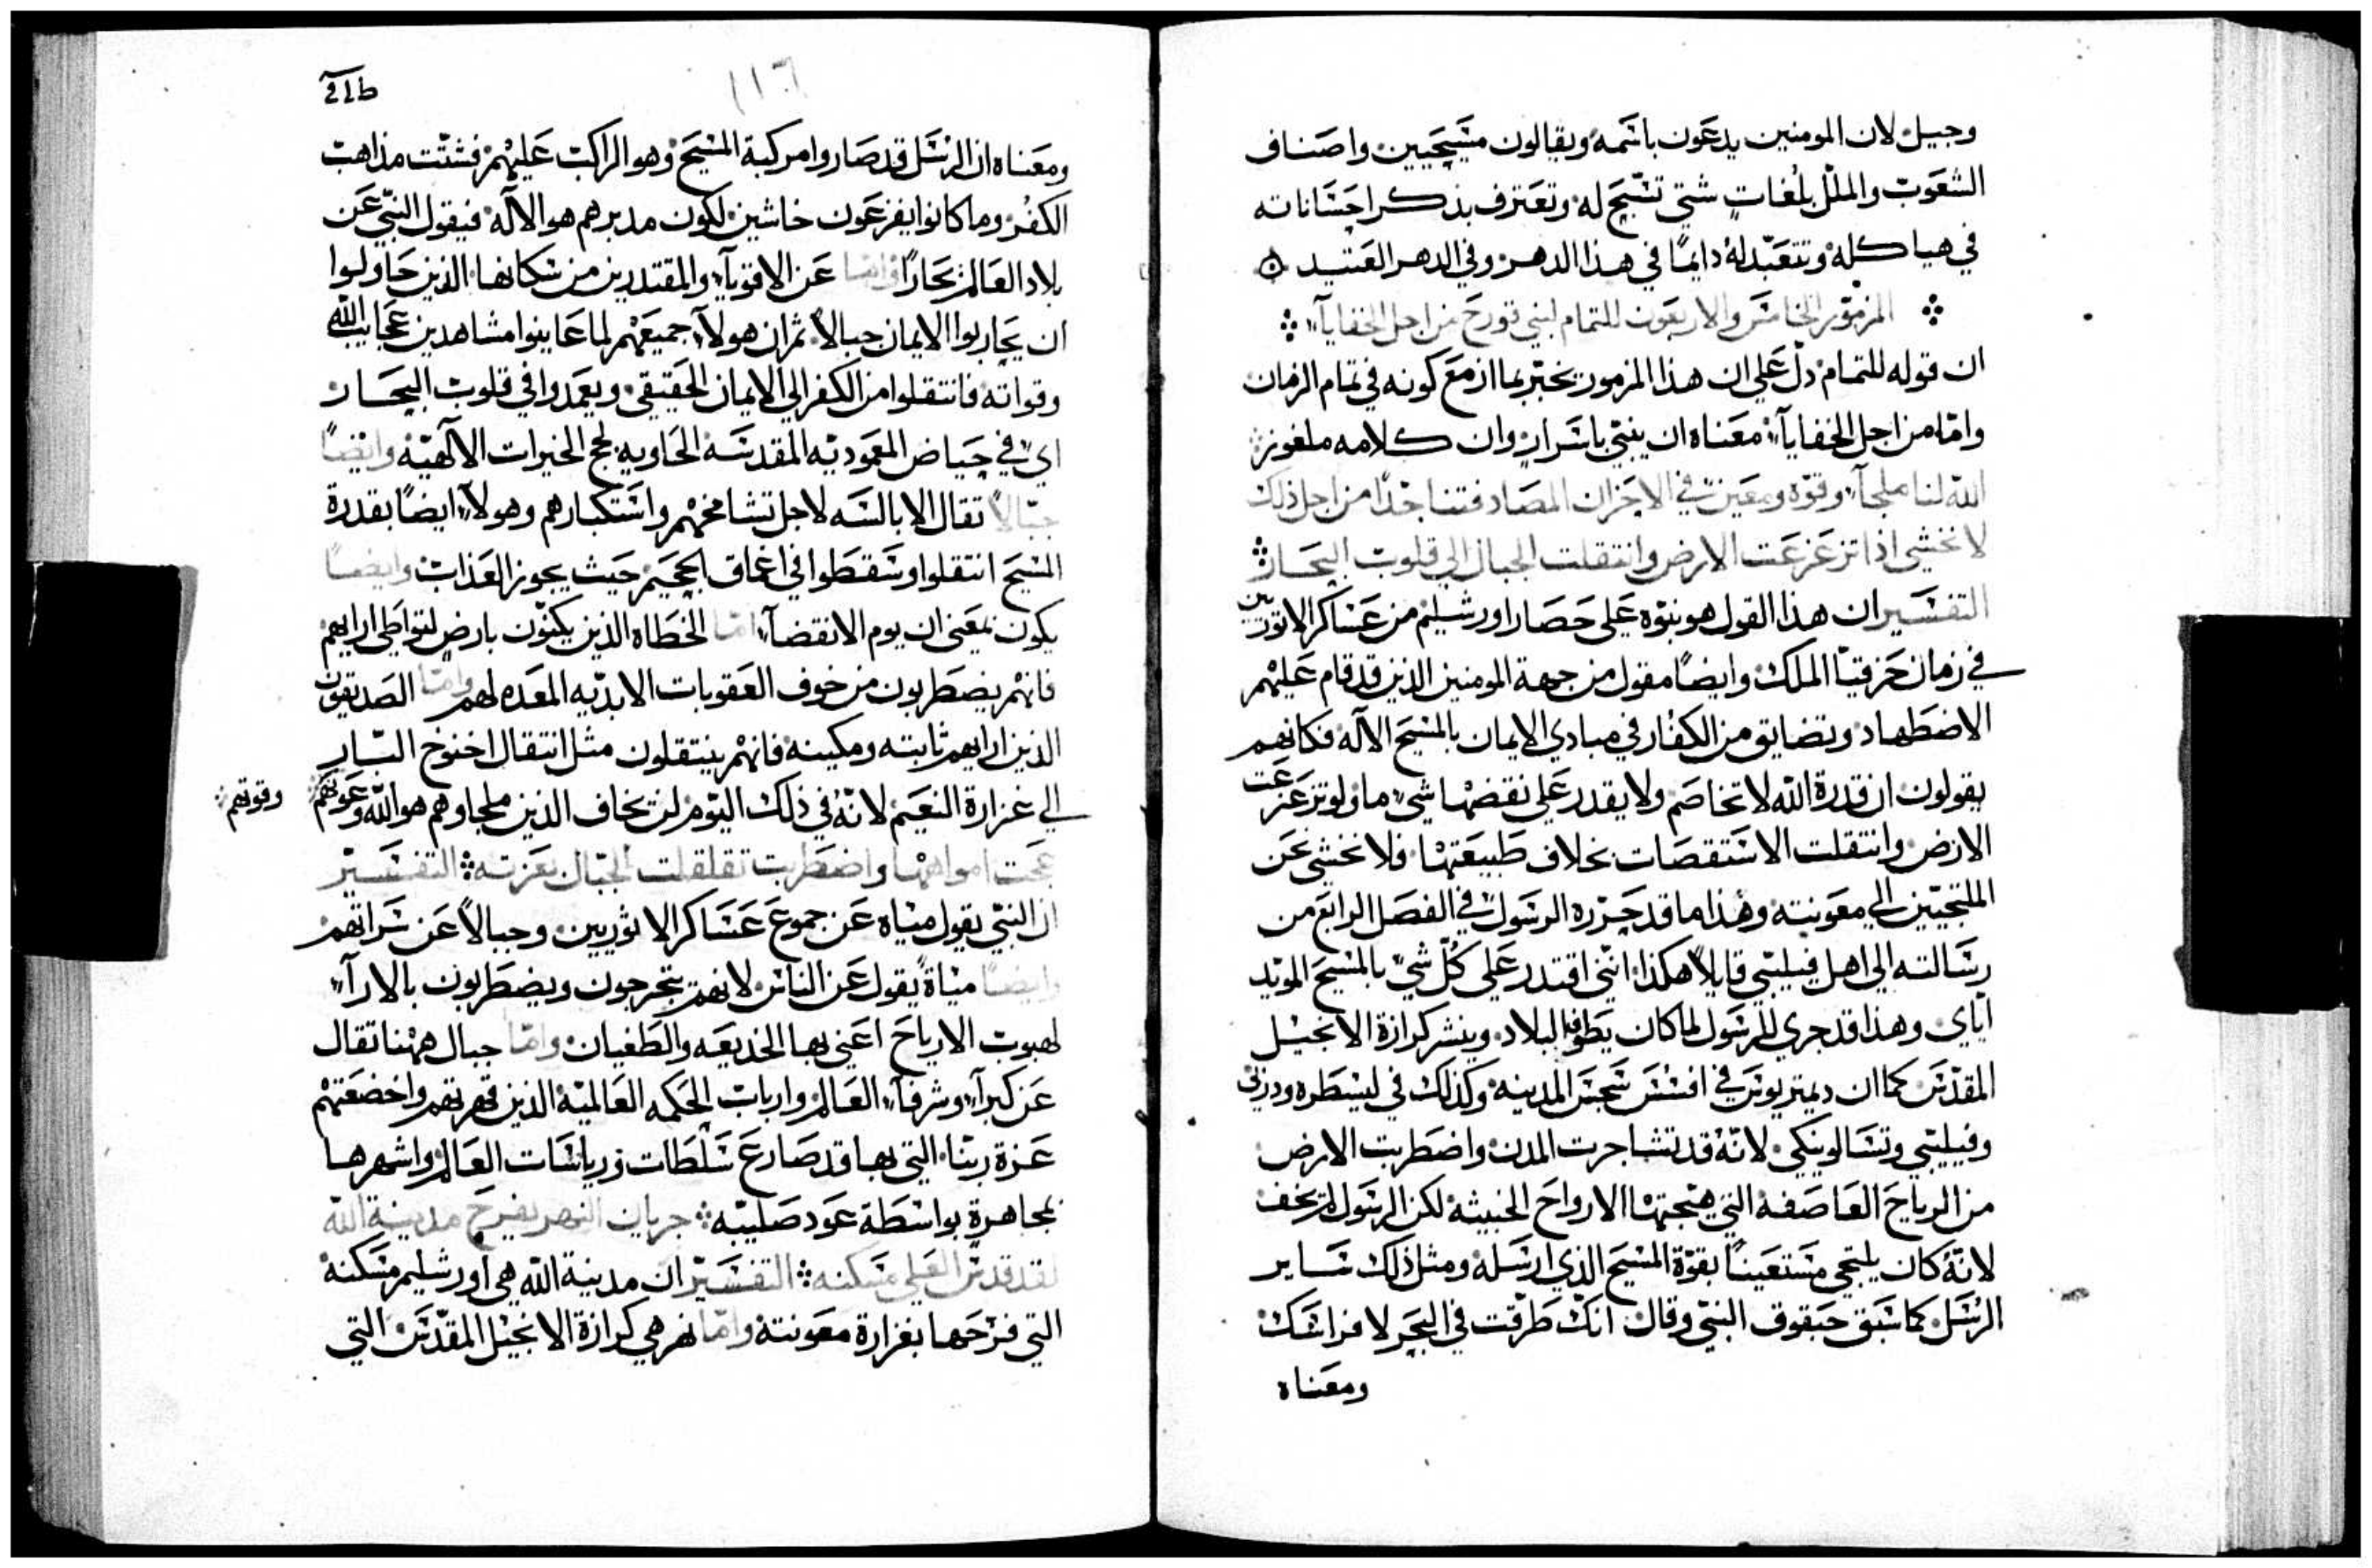 وجيل لان المومنين يدعون باسمه ويقالون مسيحيين واصناف
الشعوب والملل بلغات شتي تسبح له وتعترف بذكر احساناته
في هياكله وتتعبد له دايمًا في هذا الدهر وفي الدهر العتيد
المزمور الخامس والاربعون للتمام لبني قورح من اجل الخفايا
ان قوله للتمام دل علي ان هذا المزمور يخبر بما ازمع كونه في تمام الزمان
واما من اجل الخفايا معناه ان ينبي باسرار وان كلامه ملغوز
الله لنا ملجا وقوة ومعين في الاحزان المصادفتنا جدًا من اجل ذلك
لا نخشي اذا تزعزعت الارض وانتقلت الجبال الي قلوب البحار
التفسير ان هذا القول هو نبوه علي حصار اورشليم من عساكر الاثوريين
في زمان حزقيا الملك وايضًا مقول من جهة المومنين الذين قد قام عليهم
الاضطهاد وتضايق من الكفار في مبادي الايمان بالمسيح الاله فكانهم
يقولون ان قدرة الله لا تخاصم ولا يقدر علي نقضها شي ما ولو تزعزعت
الارض وانتقلت الاستقصات بخلاف طبيعتها فلا نخشي نحن
الملتجيين الي معونته وهذا ما قد حرره الرسول في الفصل الرابع من
رسالته الي اهل فيلبي قايلاً هكذا انني اقتدر علي كل شي بالمسيح المويد
اياي وهذا قد جري للرسول لما كان يطوف البلاد وينشر كرازة الانجيل
المقدس كما ان ديمتريوس في افسس سجس المدينه وكذلك في ليسطره ودربي
وفيلبي وتسالونيكي لانه قد تشاجرت المدن واضطربت الارض
من الرياح العاصفه التي هيجتها الارواح الخبيثه لكن الرسول لم يخف
لانه كان يلتجي مستعينًا بقوة المسيح الذي ارسله ومثل ذلك ساير
الرسل كما سبق حبقوق النبي وقال انك طرقت في البحر لافراسك
ومعناه
ومعناه ان الرسل قد صاروا مركبة المسيح وهو الراكب عليهم فشتت مذاهب
الكفر وما كانوا يفزعون خاشين لكون مدبرهم هو الاله فيقول النبي عن
بلاد العالم بحارًا وايضا عن الاقويا والمقتدرين من سكانها الذين حاولوا
ان يحاربوا الايمان جبالاً ثم ان هولا جميعهم لما عاينوا مشاهدين عجايب الله
وقواته فانتقلوا من الكفر الي الايمان الحقيقي ويعمدوا في قلوب البحار
اي في حياض المعموديه المقدسه الحاويه لجج الخيرات الالهيه وايضًا
جبالاً تقال الابالسه لاجل تشامخهم واستكبارهم وهولا ايضًا بقدرة
المسيح انتقلوا وسقطوا في اعماق الجحيم حيث يجوز العذاب وايضًا
يكون بمعني ان يوم الانقضا اما الخطاه الذين يكنون بارض لتواطي ارايهم
فانهم يضطربون من خوف العقوبات الابديه المعده لهم واما الصديقون
الذين ارايهم ثابته ومكينه فانهم ينتقلون مثل انتقال اخنوخ البار
الي غزارة النعيم لانه في ذلك اليوم لن يخاف الذين ملجاوهم هو الله وعونهم
وقوتهم
عجت امواهها واضطربت تقلقلت الجبال بعزته التفسير
ان النبي يقول مياه عن جموع عساكر الاثوريين وجبالاً عن سراتهم
وايضًا مياهً يقول عن الناس لانهم يتحرجون ويضطربون بالارا
لهبوب الارياح اعني بها الخديعه والطغيان واما جبال ههنا تقال
عن كبرا وشرفا العالم وارباب الحكمه العالميه الذين قهرتهم واخضعتهم
عزة ربنا التي بها قد صارع سلطات ورياسات العالم واشهرها
بمجاهرة بواسطة عود صليبه جريان النهر يفرح مدينة الله
لقد قدس العلي مسكنه التفسير ان مدينة الله هي اورشليم مسكنه
التي فرحها بغزارة معونته واما نهر هي كرازة الانجيل المقدس التي